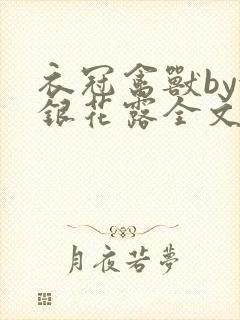 衣冠禽獸by
銀花露全文
月夜若夢